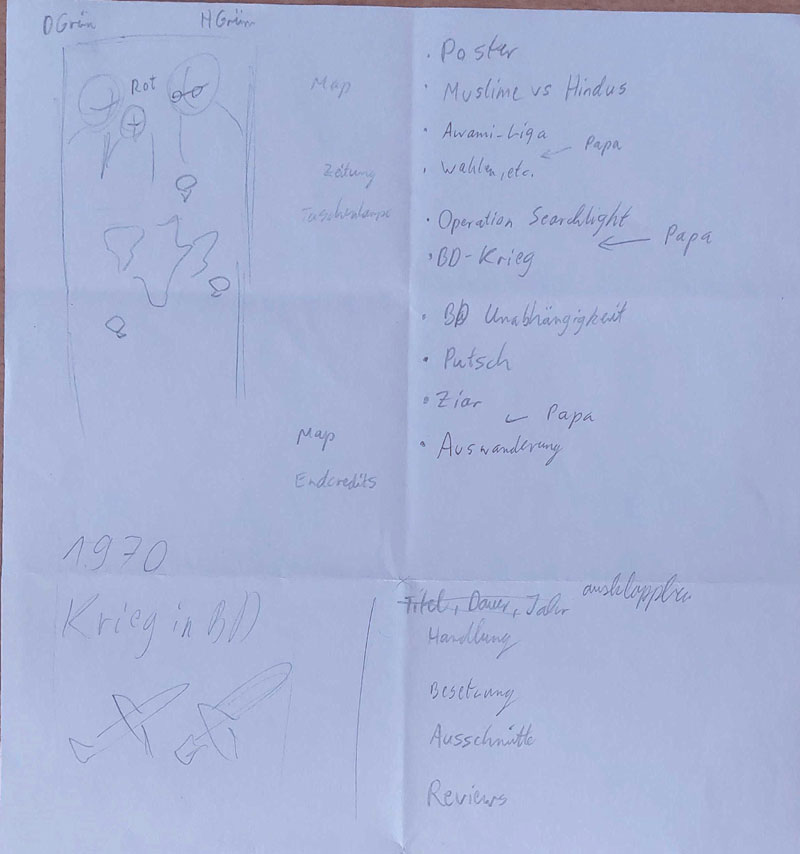 DGrün
HGrün
Rot
Map
Zeitung
Taschenlampe
Map
Endcredits
· Poster
· Muslime vs Hindus
· Awami-Liga
· Wahlen, etc.
Papa
· Operation Searchlight
· BD-Krieg
Papa
· BD Unabhängigkeit
· Putsch
· Ziar
Papa
· Auswanderung
1970
Krieg in BD
Titel, Dauer, Jahr
Handlung
Besetzung
Ausschnitte
Reviews